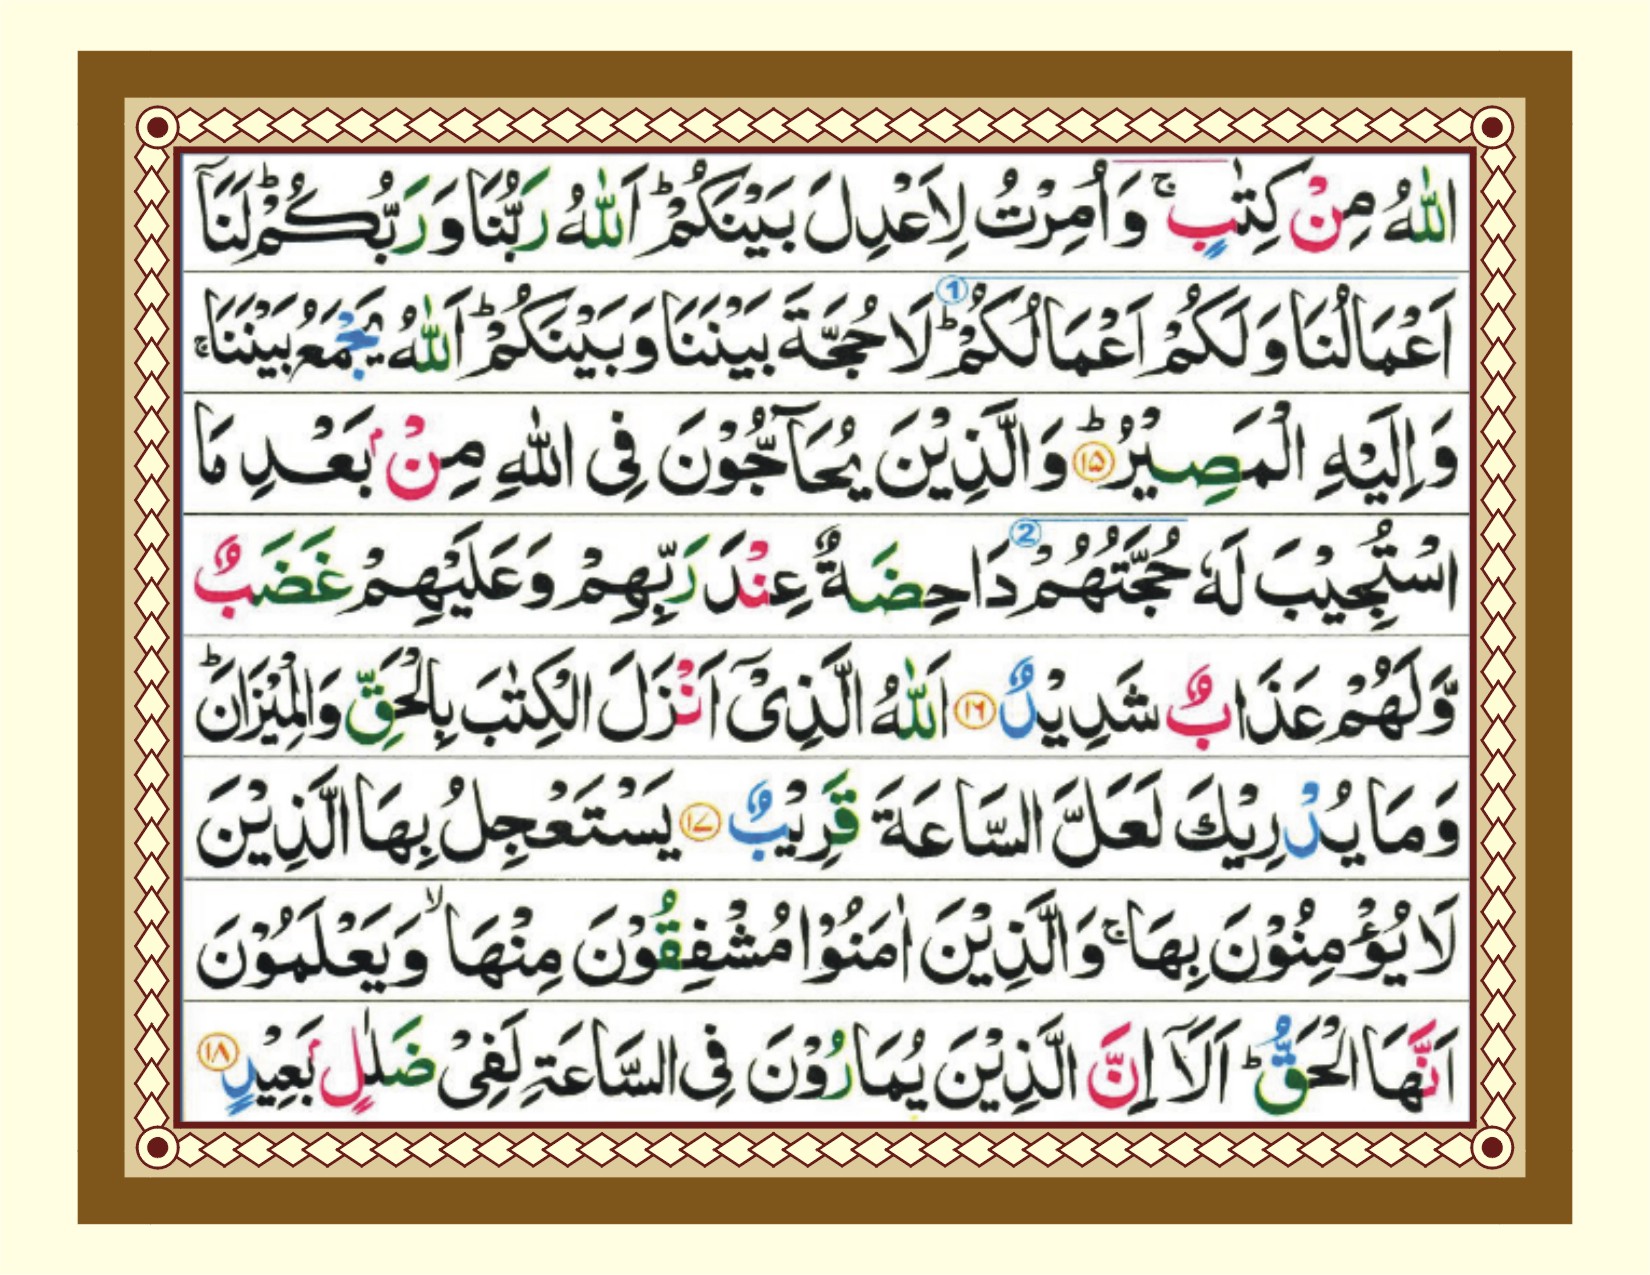 اللّٰهُ مِنْ كِتٰبٍ ۚ وَاُمِرْتُ لِاَعْدِلَ بَيْنَكُمْ ؕ اَللّٰهُ رَبُّنَا وَرَبُّكُمْ ؕ لَنَاۤ
اَعْمَالُنَا وَلَكُمْ اَعْمَالُكُمْ ؕ ① لَا حُجَّةَ بَيْنَنَا وَبَيْنَكُمْ ؕ اَللّٰهُ يَجْمَعُ بَيْنَنَا ۚ
وَاِلَيْهِ الْمَصِيْرُ ؕ ۱۵ وَالَّذِيْنَ يُحَآجُّوْنَ فِى اللّٰهِ مِنْۢ بَعْدِ مَا
اسْتُجِيْبَ لَهٗ حُجَّتُهُمْ ② دَاحِضَةٌ عِنْدَ رَبِّهِمْ وَعَلَيْهِمْ غَضَبٌ
وَّلَهُمْ عَذَابٌ شَدِيْدٌ ۱۶ اَللّٰهُ الَّذِىْۤ اَنْزَلَ الْكِتٰبَ بِالْحَقِّ وَالْمِيْزَانَ ؕ
وَمَا يُدْرِيْكَ لَعَلَّ السَّاعَةَ قَرِيْبٌ ۱۷ يَسْتَعْجِلُ بِهَا الَّذِيْنَ
لَا يُؤْمِنُوْنَ بِهَا ۚ وَالَّذِيْنَ اٰمَنُوْا مُشْفِقُوْنَ مِنْهَا ۙ وَيَعْلَمُوْنَ
اَنَّهَا الْحَقُّ ؕ اَلَاۤ اِنَّ الَّذِيْنَ يُمَارُوْنَ فِى السَّاعَةِ لَفِىْ ضَلٰلٍۢ بَعِيْدٍ ۱۸